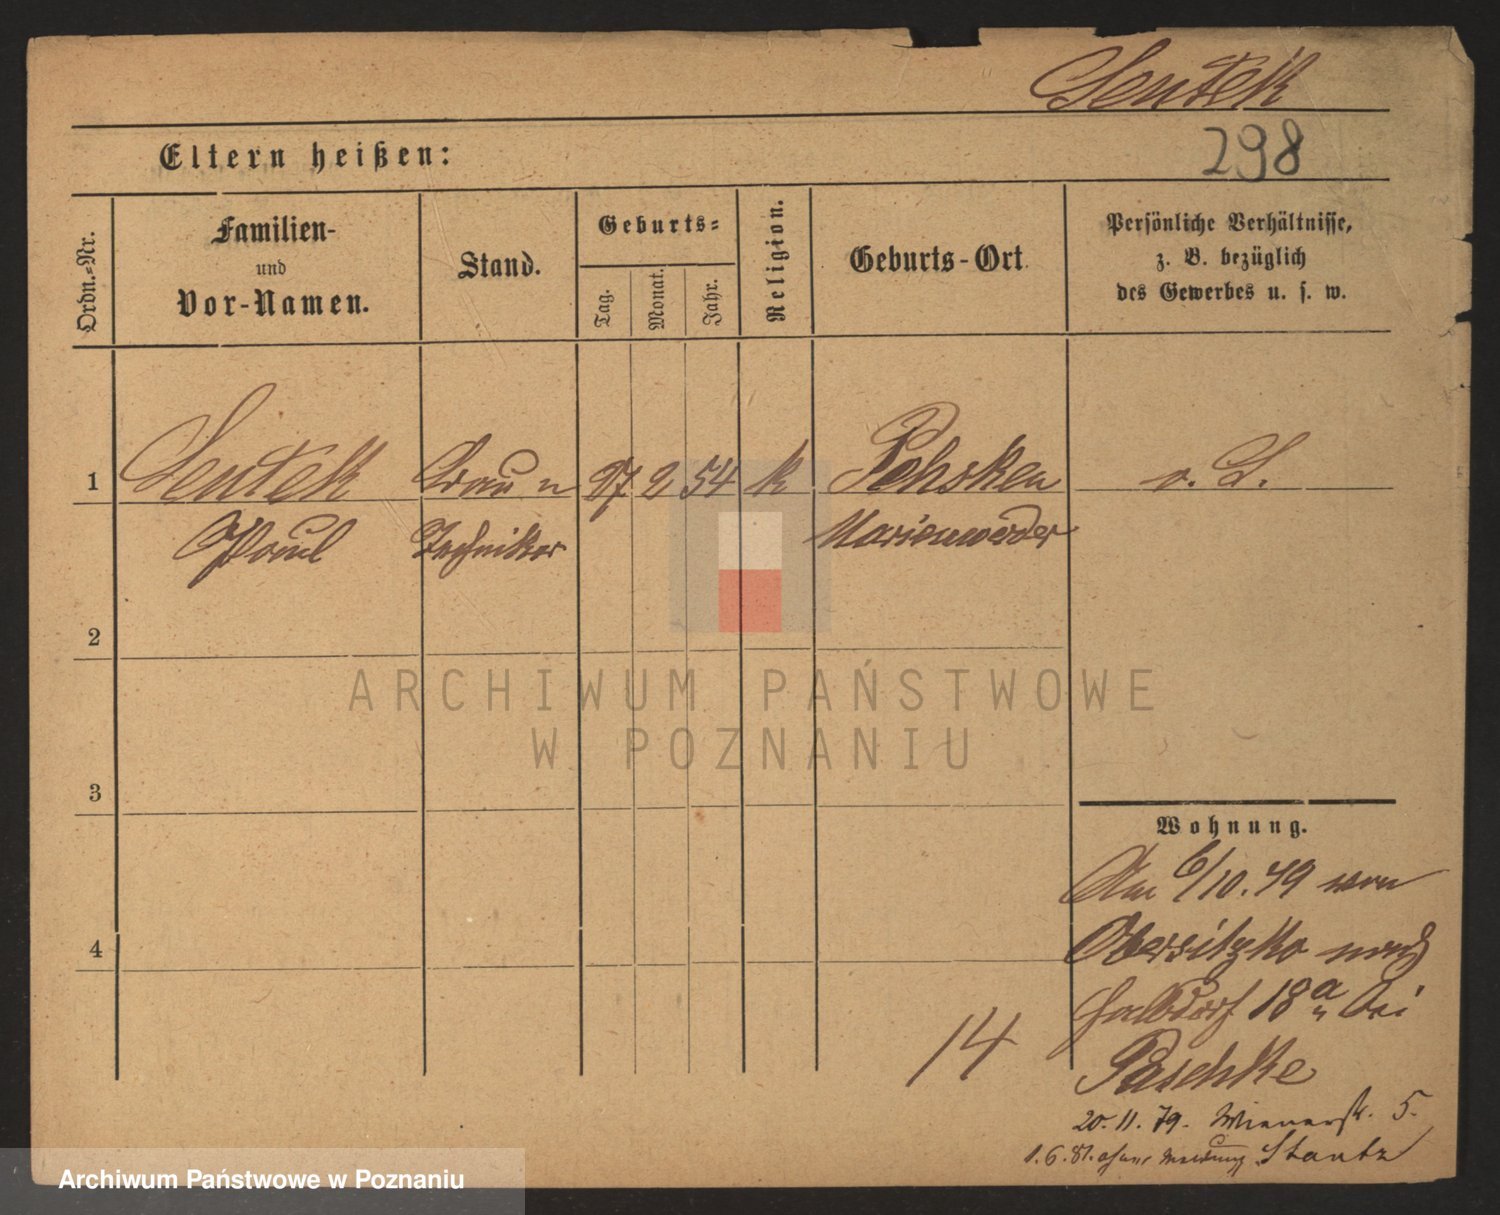 Sentek
298
Eltern heißen:
Ordn.-Nr.
Familien-
und
Vor-Namen.
Stand.
Geburts-
Tag.
Monat.
Jahr.
Religion.
Geburts-Ort
Persönliche Verhältnisse,
z. B. bezüglich
des Gewerbes u. s. w.
1 Sentek 27 2 54 k
Paul Techniker Marienwerder
2
3
4
ARCHIWUM PAŃSTWOWE
W POZNANIU
Wohnung.
Am 6/10. 79 von
Obersitzko nach
Halbdorf 18a bei
Paschke
14
20. 11. 79. Wienerstr. 5.
1. 6. 81. ohne Meldung
Archiwum Państwowe w Poznaniu